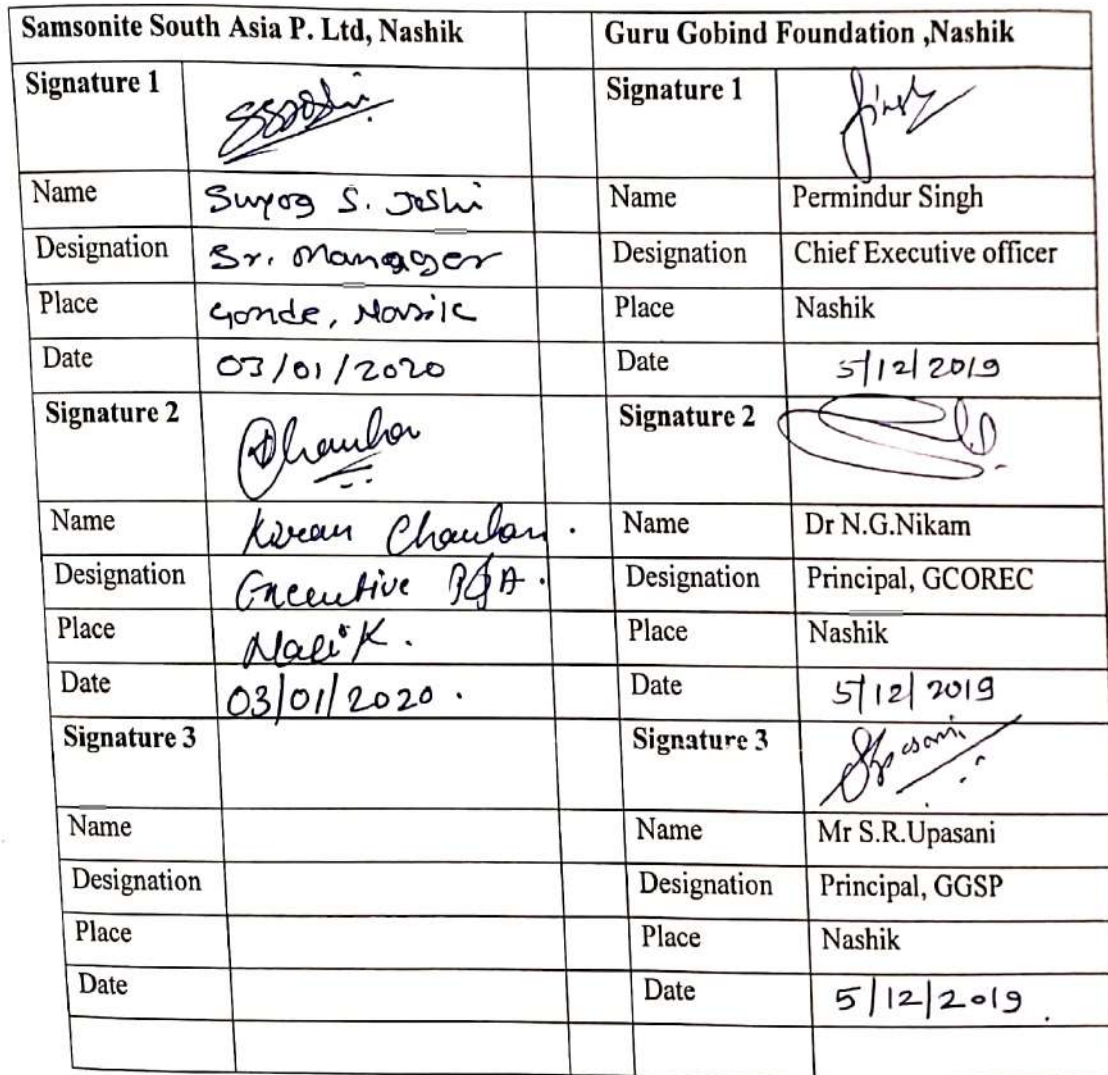 Samsonite South Asia P. Ltd, Nashik Guru Gobind Foundation ,Nashik
Signature 1 Signature 1
Name Suyog S. Joshi Name Permindur Singh
Designation Sr. Manager Designation Chief Executive officer
Place Gonde, Nasik Place Nashik
Date 03/01/2020 Date 5/12/2019
Signature 2 Signature 2
Name Kiran Chauhan. Name Dr N.G.Nikam
Designation Executive Designation Principal, GCOREC
Place Nasik. Place Nashik
Date 03/01/2020. Date 5/12/2019
Signature 3 Signature 3
Name Name Mr S.R.Upasani
Designation Designation Principal, GGSP
Place Place Nashik
Date Date 5/12/2019.